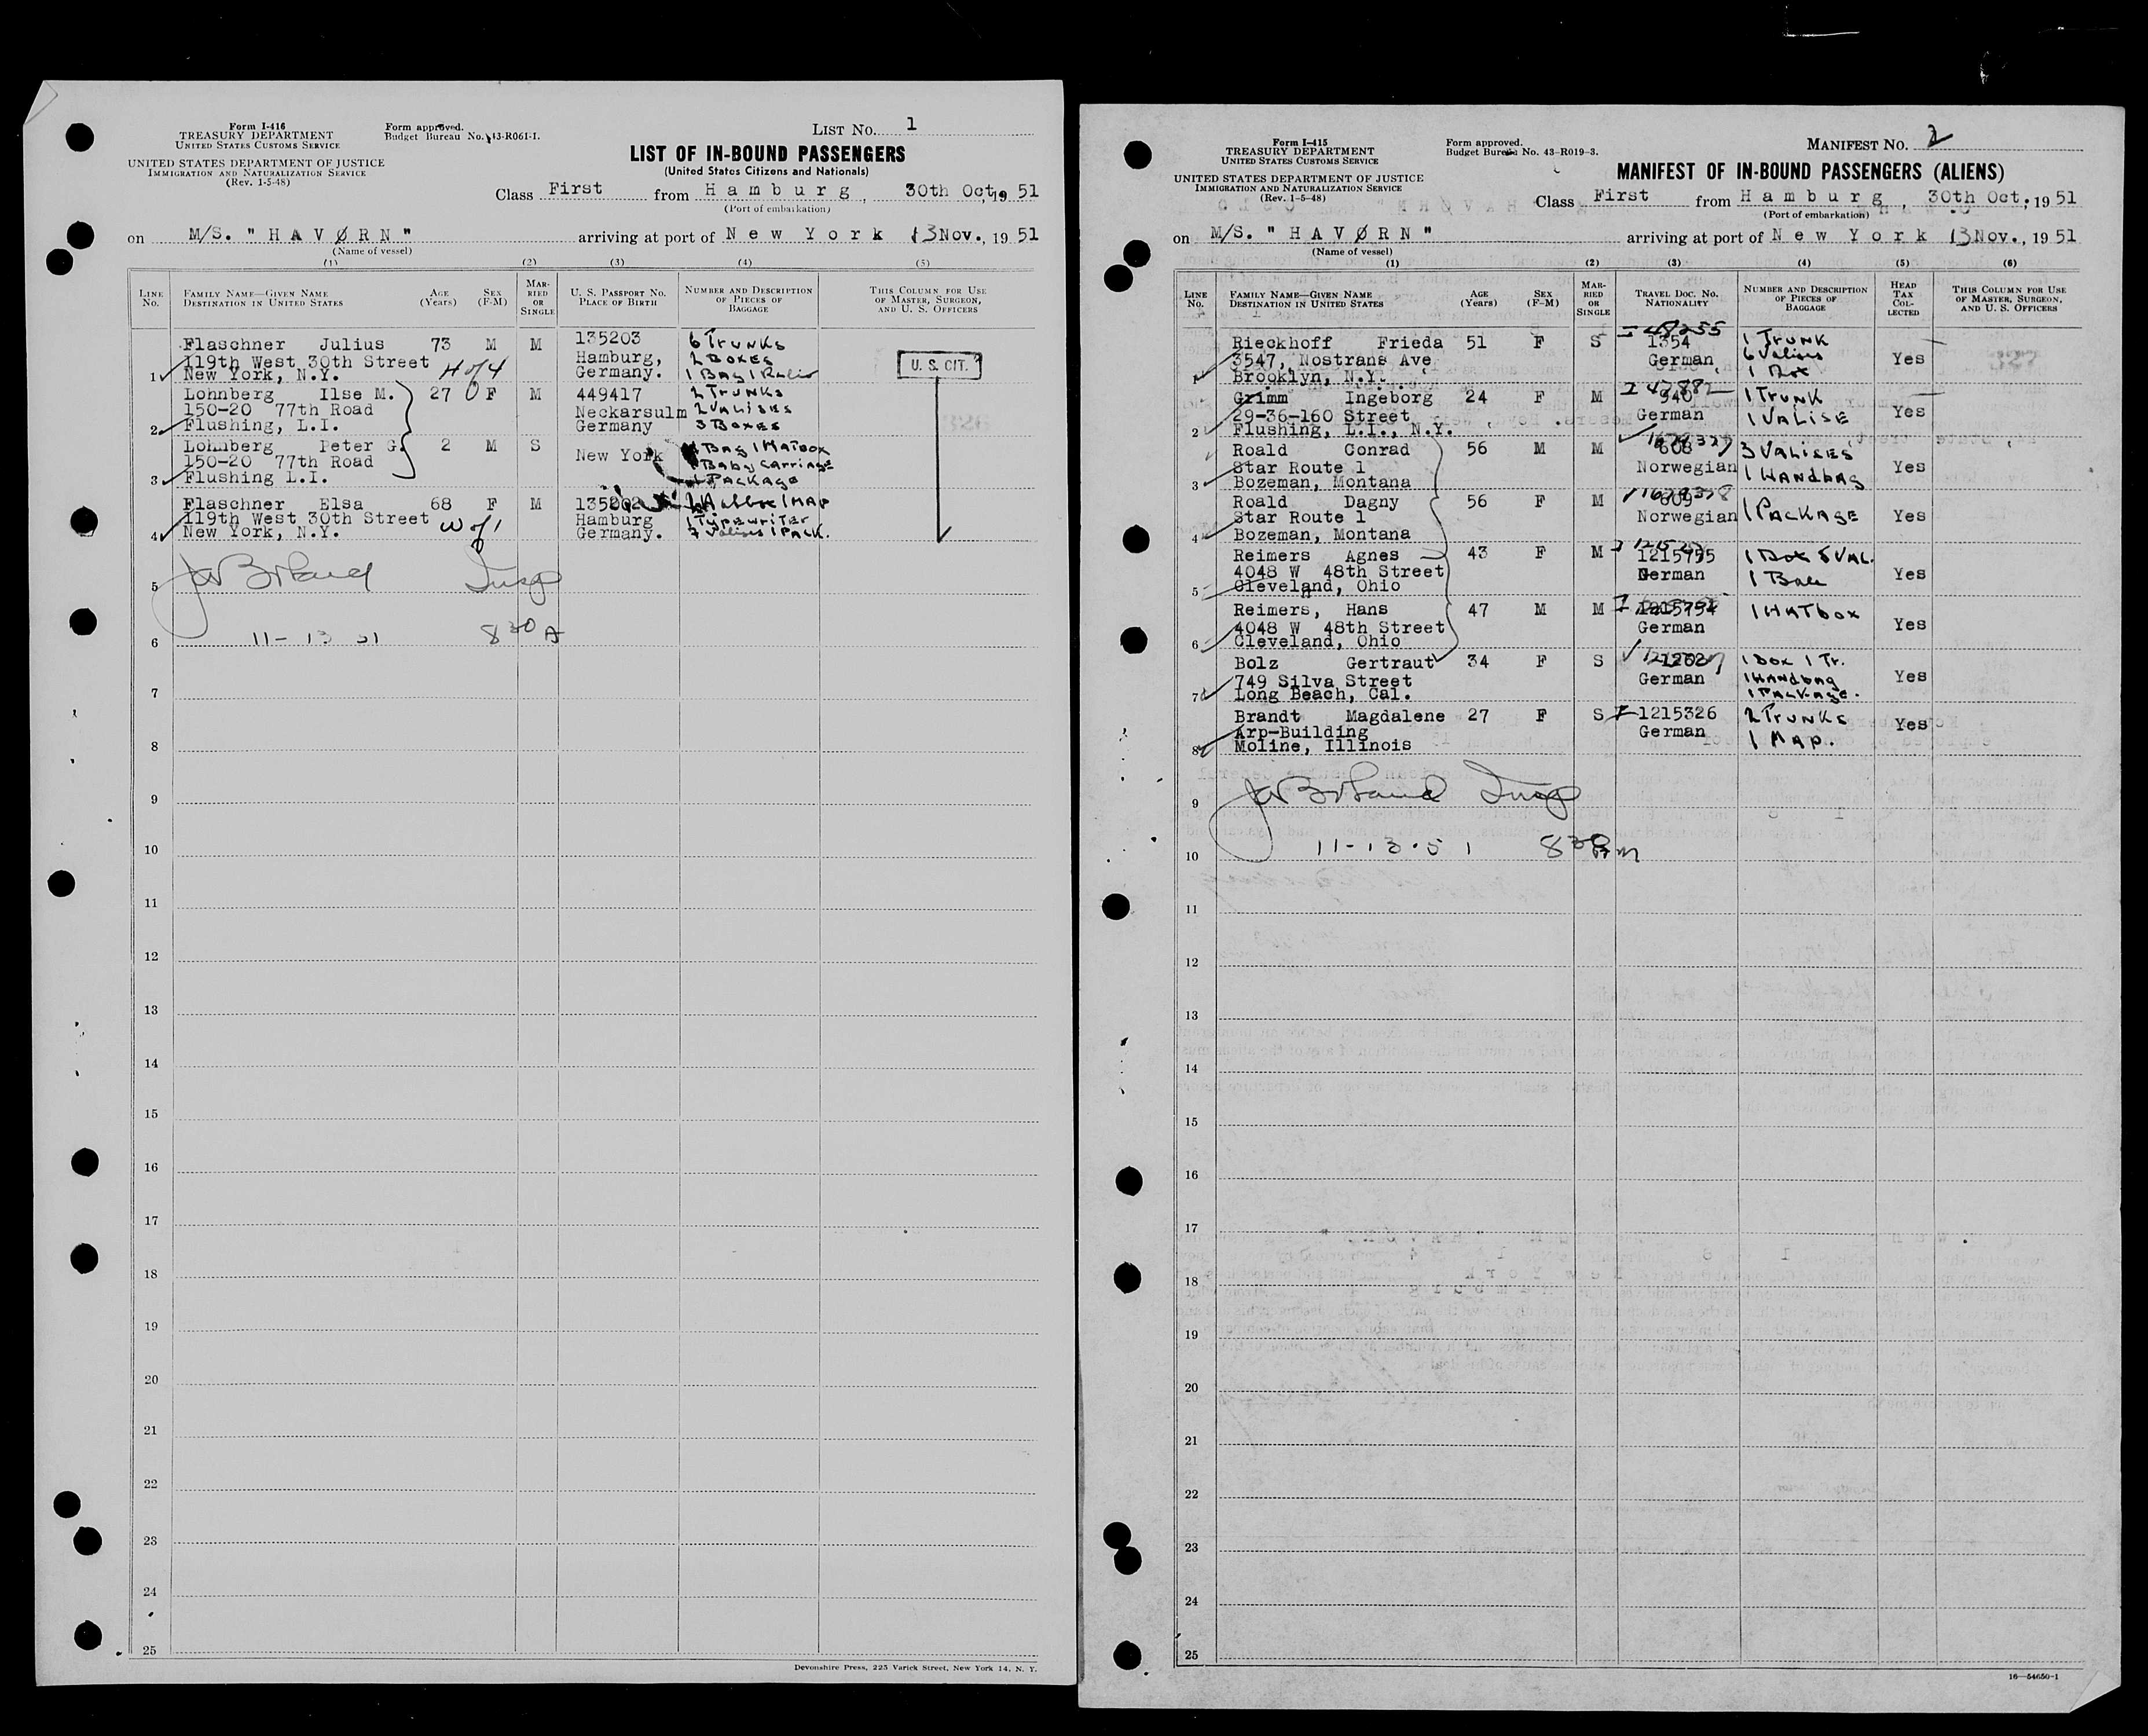 Form I-416
TREASURY DEPARTMENT
UNITED STATES CUSTOMS SERVICE
UNITED STATES DEPARTMENT OF JUSTICE
IMMIGRATION AND NATURALIZATION SERVICE
(Rev. 1-5-48)
Form approved.
Budget Bureau No. 43-R061-1.
LIST NO. 1
LIST OF IN-BOUND PASSENGERS
(United States Citizens and Nationals)
Class First from Hamburg, 30th Oct., 19 51
(Port of embarkation)
on M/S. "HAVØRN" arriving at port of New York 13 Nov., 19 51
(Name of vessel)
(1) (2) (3) (4) (5)
LINE No. FAMILY NAME—GIVEN NAME DESTINATION IN UNITED STATES AGE (Years) SEX (F-M) MARRIED OR SINGLE U. S. PASSPORT NO. PLACE OF BIRTH NUMBER AND DESCRIPTION OF PIECES OF BAGGAGE THIS COLUMN FOR USE OF MASTER, SURGEON, AND U. S. OFFICERS
Flaschner Julius 73 M M 135203 6 Trunks
119th West 30th Street Hamburg, 2 Boxes U. S. CIT.
1 New York, N.Y. H of 4 Germany. 1 Bag 1 Radio
Lohnberg Ilse M. 27 F M 449417 2 Trunks
150-20 77th Road Neckarsulm 2 Valises
2 Flushing, L.I. Germany 3 Boxes
Lohnberg Peter G. 2 M S Bag 1 Hatbox
150-20 77th Road New York 1 Baby Carriage
3 Flushing L.I. 1 Package
Flaschner Elsa 68 F M 135202 1 Hatbox 1 Map
119th West 30th Street Hamburg 1 Typewriter
4 New York, N.Y. W of 1 Germany. 7 Valises 1 Pack.
5 Insp
6 11-13 51 8 30 A
7
8
9
10
11
12
13
14
15
16
17
18
19
20
21
22
23
24
25
Devonshire Press, 225 Varick Street, New York 14, N. Y.
Form I-415
TREASURY DEPARTMENT
UNITED STATES CUSTOMS SERVICE
UNITED STATES DEPARTMENT OF JUSTICE
IMMIGRATION AND NATURALIZATION SERVICE
(Rev. 1-5-48)
Form approved.
Budget Bureau No. 43-R019-3.
MANIFEST NO. 2
MANIFEST OF IN-BOUND PASSENGERS (ALIENS)
Class First from Hamburg, 30th Oct., 19 51
(Port of embarkation)
on M/S. "HAVØRN" arriving at port of New York 13 Nov., 19 51
(Name of vessel)
(1) (2) (3) (4) (5) (6)
LINE No. FAMILY NAME—GIVEN NAME DESTINATION IN UNITED STATES AGE (Years) SEX (F-M) MARRIED OR SINGLE TRAVEL DOC. NO. NATIONALITY NUMBER AND DESCRIPTION OF PIECES OF BAGGAGE HEAD TAX COLLECTED THIS COLUMN FOR USE OF MASTER, SURGEON, AND U. S. OFFICERS
I 48255
Rieckhoff Frieda 51 F S 1354 1 Trunk
3547, Nostrans Ave German 6 Valises Yes
1 Brooklyn, N.Y. 1 Box
Grimm Ingeborg 24 F M 940 1 Trunk
29-36-160 Street German 1 Valise Yes
2 Flushing, L.I., N.Y.
Roald Conrad 56 M M 608 3 Valises
Star Route 1 Norwegian 1 Handbag Yes
3 Bozeman, Montana
Roald Dagny 56 F M 609 1 Package
Star Route 1 Norwegian Yes
4 Bozeman, Montana
Reimers Agnes 43 F M 1215755 1 Box 5 Val.
4048 W 48th Street German 1 Bale Yes
5 Cleveland, Ohio
Reimers, Hans 47 M M 1215754 1 Hatbox
4048 W 48th Street German Yes
6 Cleveland, Ohio
Bolz Gertraut 34 F S 1 Box 1 Tr.
749 Silva Street German 1 Handbag Yes
7 Long Beach, Cal. 1 Package.
Brandt Magdalene 27 F S I-1215326 2 Trunks
Arp-Building German 1 Map. Yes
8 Moline, Illinois
9 Insp
10 11-13-51 8 30 Am
11
12
13
14
15
16
17
18
19
20
21
22
23
24
25
16—54650-1